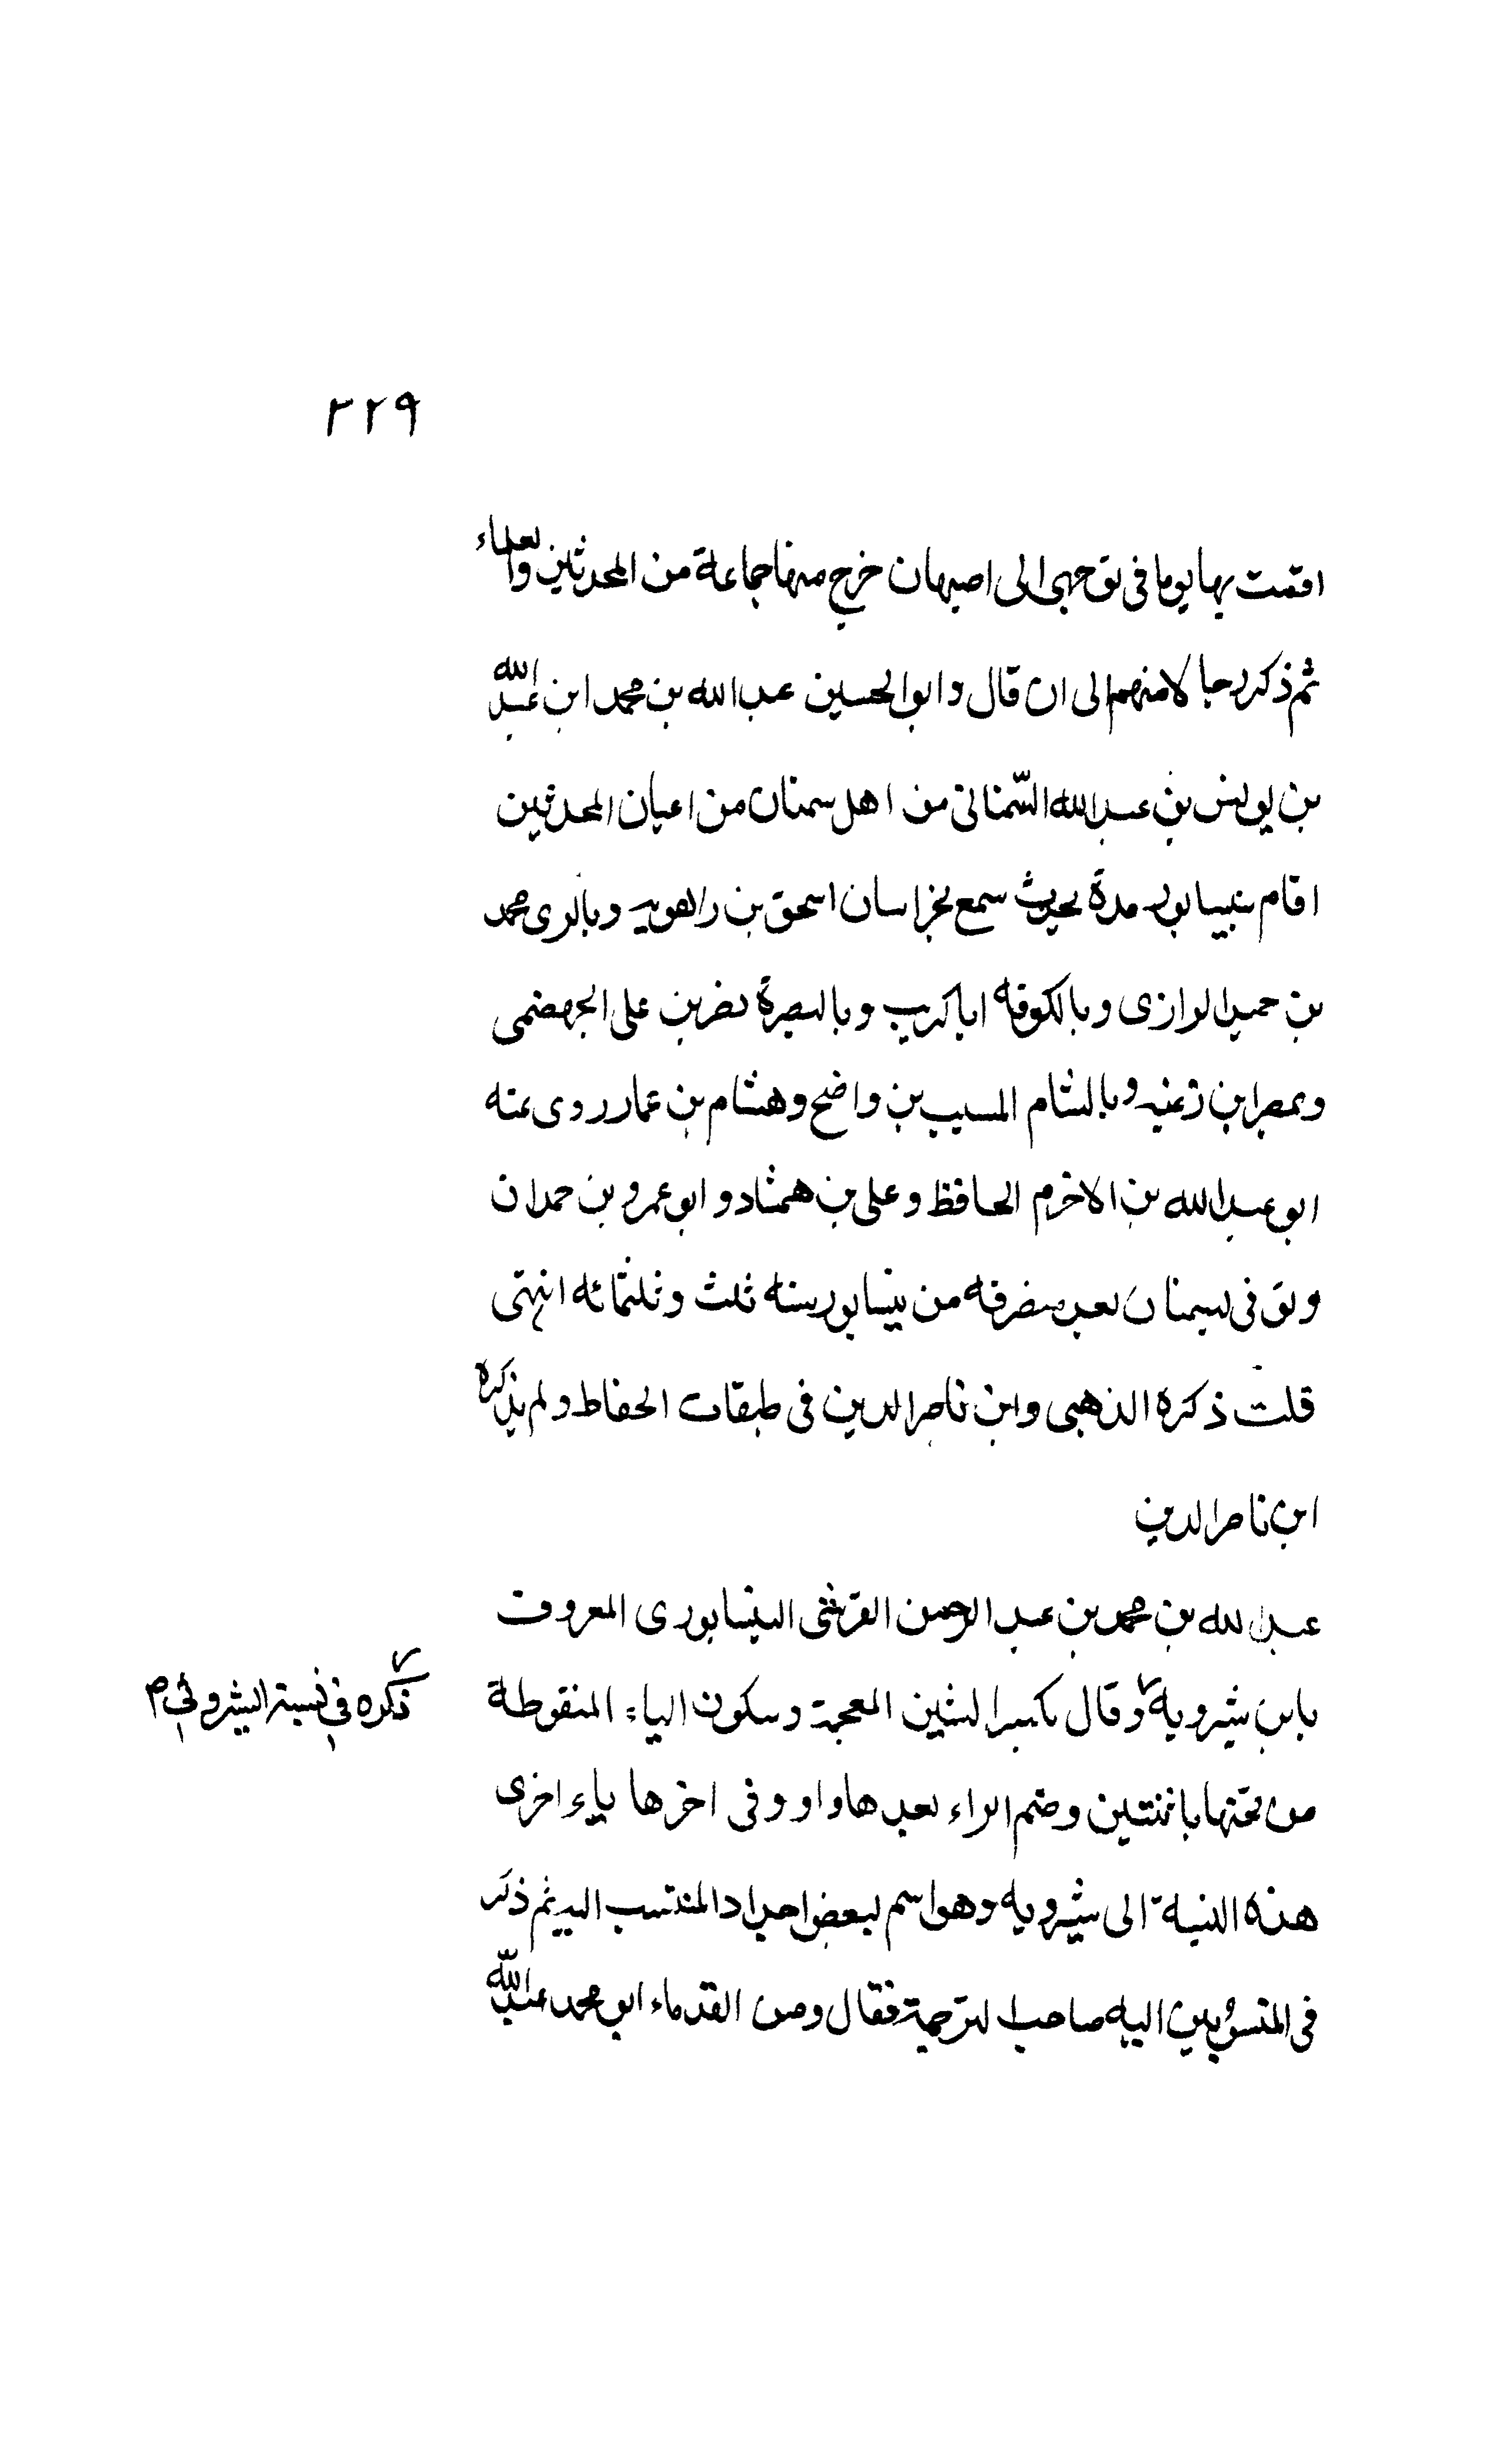 ٢٢٩
اقمت بها يوما فى توجهى الى اصبهان خرج منها جماعة من المحدثين والعلماء
ثم ذكر رجالا منهم الى ان قال وابو الحسين عبد الله بن محمد ابن عبد الله
بن يونس بن عبد الله السّمنانى من اهل سمنان من اعيان المحدثين
اقام بنيسابور مدة يحدث سمع بخراسان اسحق بن راهويه وبالرى محمد
بن حميد الرازى وبالكوفه ابا كريب وبالبصرة نضر بن على الجهضمى
وبمصر ابن زغبه وبالشام المسيب بن واضح وهشام بن عمار روى عنه
ابو عبد الله بن الاخرم الحافظ وعلى بن همشاد وابو عمرو بن حمدان
وتوفى بسمنان بعد منصرفه من نيسابور سنه ثلث وثلثمائه انتهى
قلت ذكره الذهبى وابن ناصر الدين فى طبقات الحفاظ ولم يذكره
ابن ناصر الدين
عبد الله بن محمد بن عبد الرحمن القرشى النيسابورى المعروف
بابن شيرويه وقال بكسر الشين المعجمة وسكون الياء المنقوطة
ذكره فى نسبة الشيرويى م
من تحتها باثنتين وضم الراء بعدها واو وفى اخرها ياء اخرى
هذه النسبة الى شيرويه وهو اسم لبعض اجداد المنتسب اليه ثم ذكر
فى المنسوبين اليه صاحب الترجمة فقال ومن القدماء ابو محمد عبد الله